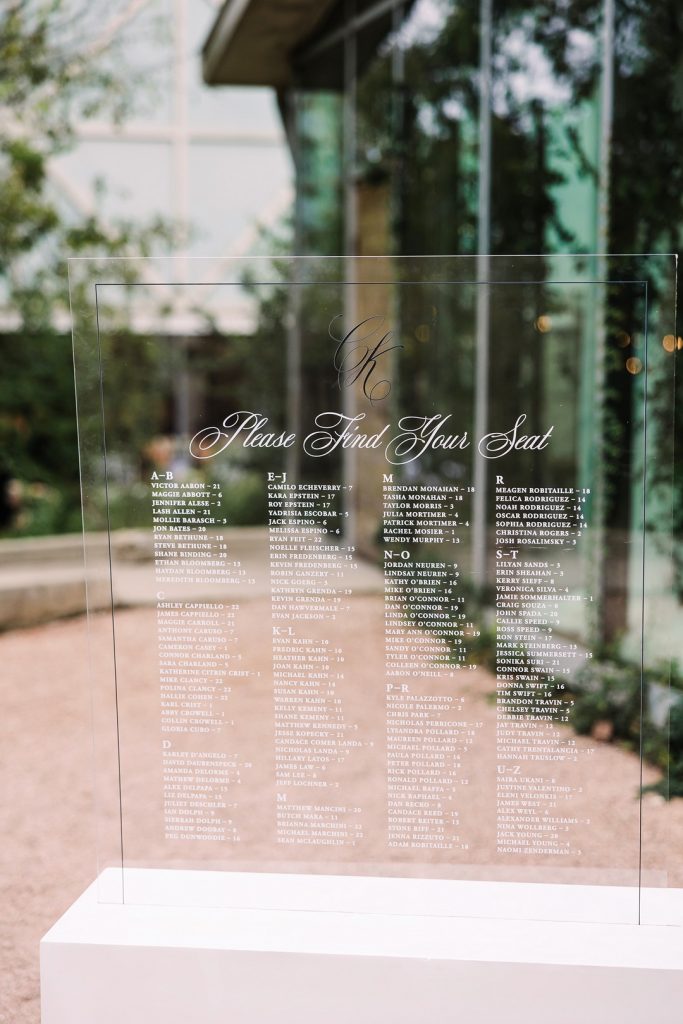 CK
Please Find Your Seat
A-B
VICTOR AARON - 21
MAGGIE ABBOTT - 6
JENNIFER ALESE - 2
LASH ALLEN - 21
MOLLIE BARASCH - 3
JON BATES - 20
RYAN BETHUNE - 18
STEVE BETHUNE - 18
SHANE BINDING - 20
ETHAN BLOOMBERG - 13
HAYDAN BLOOMBERG - 13
MEREDITH BLOOMBERG - 13
C
ASHLEY CAPPIELLO - 22
JAMES CAPPIELLO - 22
MAGGIE CARROLL - 21
ANTHONY CARUSO - 7
SAMANTHA CARUSO - 7
CAMERON CASEY - 1
CONNOR CHARLAND - 5
SARA CHARLAND - 5
KATHERINE CITRIN CRIST - 1
MIKE CLANCY - 22
POLINA CLANCY - 22
HALLIE COHEN - 22
KARL CRIST - 1
ABBY CROWELL - 1
COLLIN CROWELL - 1
GLORIA CUBO - 7
D
KARLEY D'ANGELO - 7
DAVID DAUBENSPECK - 20
AMANDA DELORME - 4
MATHEW DELORME - 4
ALEX DELPAPA - 15
LIZ DELPAPA - 15
JULIET DESCHLER - 7
IAN DOLPH - 9
SIERRAH DOLPH - 9
ANDREW DOGRAY - 8
PEG DUNWOODIE - 16
E-J
CAMILO ECHEVERRY - 7
KARA EPSTEIN - 17
ROY EPSTEIN - 17
YADRISIA ESCOBAR - 5
JACK ESPINO - 6
MELISSA ESPINO - 6
RYAN FEIT - 22
NOELLE FLEISCHER - 15
ERIN FERNBERG - 15
KEVIN FERNBERG - 15
ROBIN GANZERT - 1
NICK GOERG - 3
KATHRYN GRENDA - 19
KEVIN GRENDA - 19
DAN HAWVERMALE - 7
EVAN JACKSON - 2
K-L
EVAN KAHN - 16
FREDRIC KAHN - 14
HEATHER KAHN - 10
JOAN KAHN - 10
MICHAEL KAHN - 14
NANCY KAHN - 14
SUSAN KAHN - 14
WARREN KAHN - 10
KELLY KEMENY - 11
SHANE KEMENY - 11
MATTHEW KENNEDY - 5
JESSE KOPECKY - 21
CANDACE COMER LANDA - 9
NICHOLAS LANDA - 9
HILLARY LATOS - 17
JAMES LAW - 6
SAM LEE - 8
JEFF LOCHNER - 2
M
MATTHEW MANCINI - 20
BUTCH MARA - 11
BRIANNA MARCHINI - 22
MICHAEL MARCHINI - 22
SEAN MCLAUGHLIN - 1
M
BRENDAN MONAHAN - 18
TASHA MONAHAN - 18
TAYLOR MORRIS - 3
JULIA MORTIMER - 4
PATRICK MORTIMER - 4
RACHEL MOSIER - 1
WENDY MURPHY - 13
N-O
JORDAN NEUREN - 9
LINDSAY NEUREN - 9
KATHY O'BRIEN - 16
MIKE O'BRIEN - 16
BRIAN O'CONNOR - 11
DAN O'CONNOR - 11
LINDA O'CONNOR - 19
LINDSEY O'CONNOR - 11
MARY ANN O'CONNOR - 19
MIKE O'CONNOR - 19
SANDY O'CONNOR - 11
TYLER O'CONNOR - 11
COLLEEN O'CONNOR - 19
AARON O'NEILL - 8
P-R
KYLE PALAZZOTTO - 6
NICOLE PALERMO - 2
CHRIS PARK - 7
NICHOLAS PERRICONE - 17
LYSANDRA POLLARD - 18
MAUREEN POLLARD - 12
MICHAEL POLLARD - 5
PAULA POLLARD - 16
PETER POLLARD - 18
RICK POLLARD - 16
RONALD POLLARD - 12
MICHAEL RAFFA - 5
NICK RAPHAEL - 4
DAN RECKO - 8
CANDACE REED - 19
ROBERT REITER - 13
STONE RIFF - 21
JENNA RIZZUTO - 21
ADAM ROBITAILLE - 18
R
MEAGEN ROBITAILLE - 18
FELICA RODRIGUEZ - 14
NOAH RODRIGUEZ - 14
OSCAR RODRIGUEZ - 14
SOPHIA RODRIGUEZ - 14
CHRISTINA ROGERS - 2
JOSH ROSALIMSKY - 3
S-T
LILYAN SANDS - 3
ERIN SHEAHAN - 3
KERRY SIEFF - 8
VERONICA SILVA - 4
JAMIE SOMMERHALTER - 1
CRAIG SOUZA - 8
JOHN SPADA - 20
CALLIE SPEED - 9
ROSS SPEED - 9
RON STEIN - 17
MARK STEINBERG - 13
JESSICA SUMMERSETT - 15
SONIKA SURI - 21
CONNOR SWAIN - 15
KRIS SWAIN - 15
DONNA SWIFT - 16
TIM SWIFT - 16
BRANDON TRAVIN - 5
CHELSEY TRAVIN - 5
DEBBIE TRAVIN - 12
JAY TRAVIN - 13
JUDY TRAVIN - 12
MICHAEL TRAVIN - 12
CATHY TRENTALANGIA - 17
HANNAH TRUSLOW - 2
U-Z
SAIRA UKANI - 8
JUSTINE VALENTINO - 2
ELENI VELONKIS - 17
JAMES WEST - 21
ALEX WEYL - 6
ALEXANDER WILLIAMS - 2
NINA WOLLBERG - 3
JACK YOUNG - 20
MICHAEL YOUNG - 4
NAOMI ZENDERMAN - 3